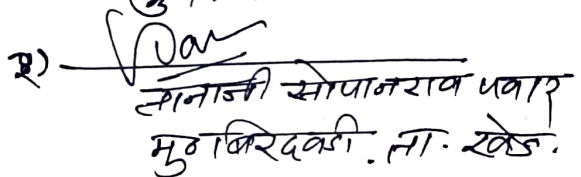 २)
तानाजी सोपानराव पवार
मु० बिरदवडी. ता. खेड.